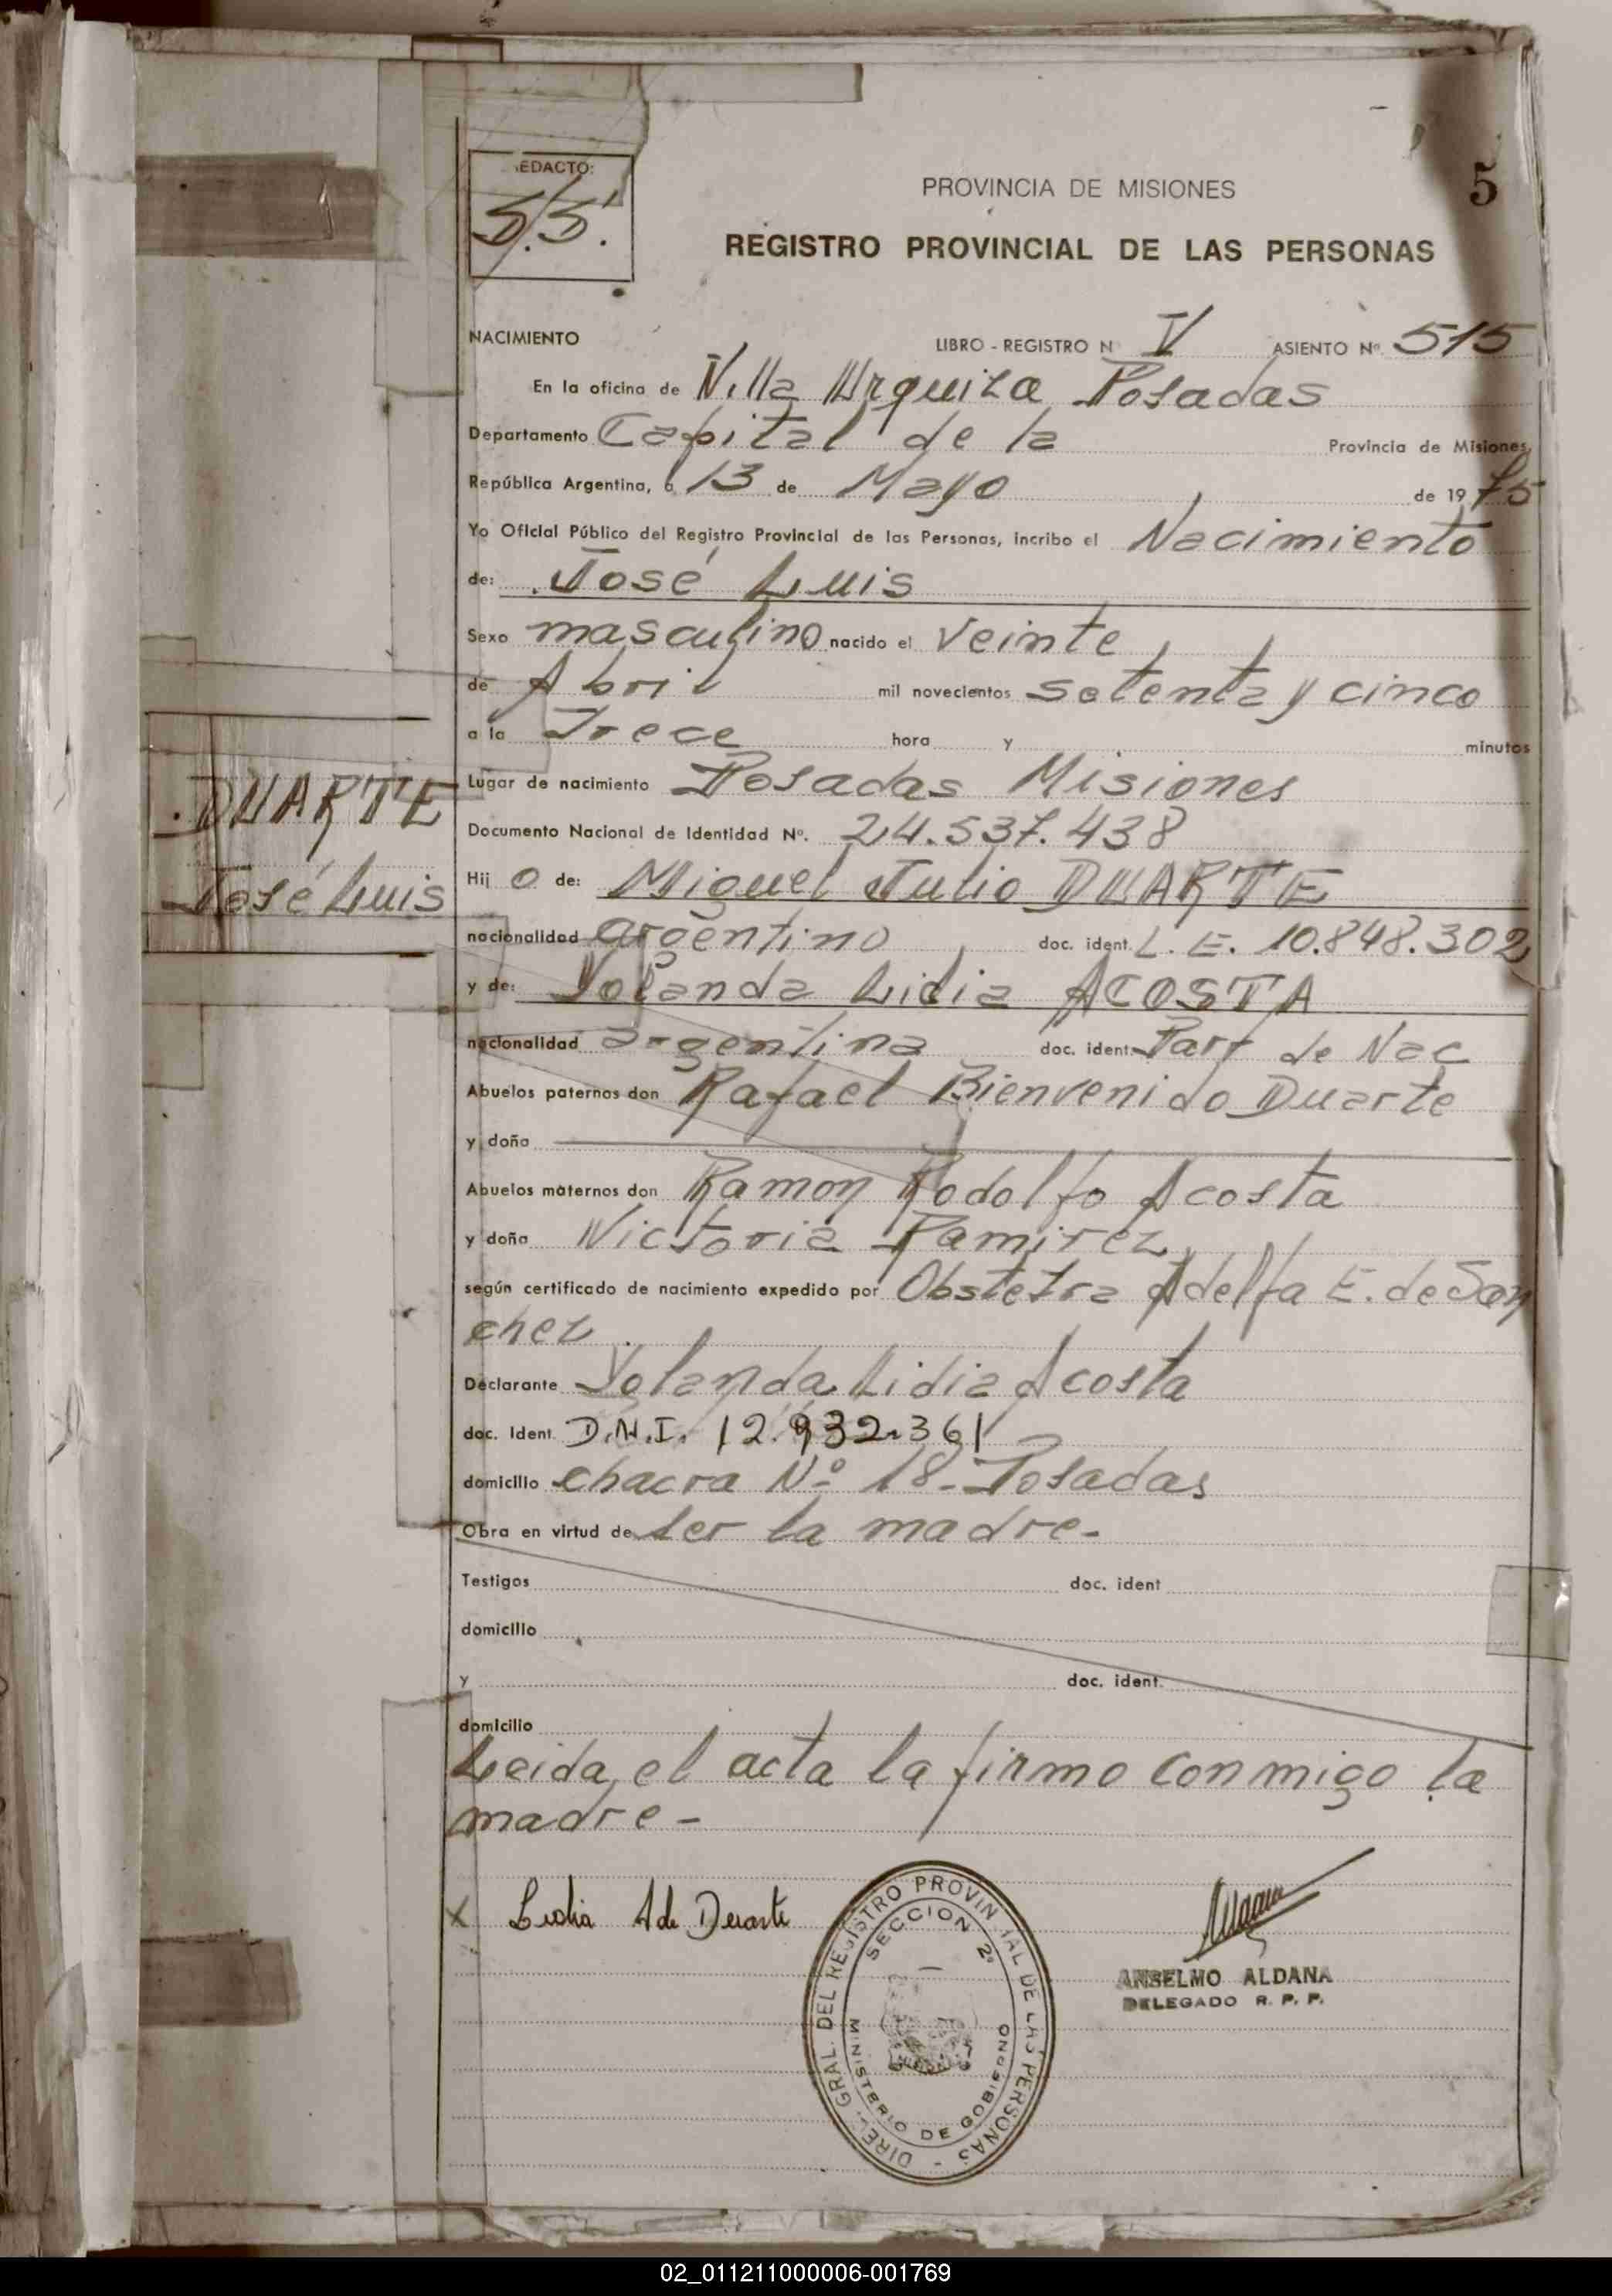 REDACTO:
S.S.
5
PROVINCIA DE MISIONES
REGISTRO PROVINCIAL DE LAS PERSONAS
NACIMIENTO LIBRO - REGISTRO N V ASIENTO Nº. 515
En la oficina de Villa Urquiza Posadas
Departamento Capital de la Provincia de Misiones,
República Argentina, a 13 de Mayo de 19 75
Yo Oficial Público del Registro Provincial de las Personas, incribo el Nacimiento
de: José Luis
Sexo masculino nacido el veinte
de Abril mil novecientos setenta y cinco
a la Trece hora y minutos
Lugar de nacimiento Posadas Misiones
Documento Nacional de Identidad Nº. 24.537.438
DUARTE
José Luis
Hij o de: Miguel Julio DUARTE
nacionalidad argentino doc. ident. L. E. 10.848.302
y de: Yolanda Lidia ACOSTA
nacionalidad argentina doc. ident. Part de Nac
Abuelos paternos don Rafael Bienvenido Duarte
y doña
Abuelos maternos don Ramon Rodolfo Acosta
y doña Victoria Ramirez
según certificado de nacimiento expedido por Obstetra Adelfa E. de San
chez
Declarante Yolanda Lidia Acosta
doc. Ident. D.N.I. 12.932.361
domicilio chacra Nº 18 - Posadas
Obra en virtud de ser la madre -
Testigos doc. ident
domicilio
y doc. ident.
domicilio
Leida el acta la firmo conmigo la
madre -
X Lidia A de Duarte
DIREC. GRAL. DEL REGISTRO PROVINCIAL DE LAS PERSONAS -
SECCION 2º
MINISTERIO DE GOBIERNO
ANSELMO ALDANA
DELEGADO R. P. P.
02_011211000006-001769